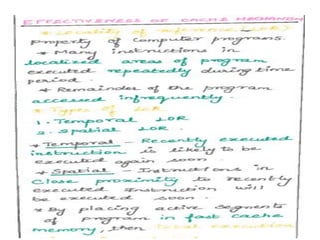 EFFECTIVENESS OF CACHE MECHANISM
* Locality of reference (LOR)
Property of Computer programs.
* Many instructions in
localized areas of program
executed repeatedly during time
period.
* Remainder of the program
accessed infrequently.
* Types of LOR
1. Temporal LOR
2. Spatial LOR.
* Temporal - Recently executed
instruction is likely to be
executed again soon.
* Spatial - Instructions in
Close proximity to recently
executed Instruction will
be executed soon.
* By placing active segments
of program in fast cache
memory, then total execution